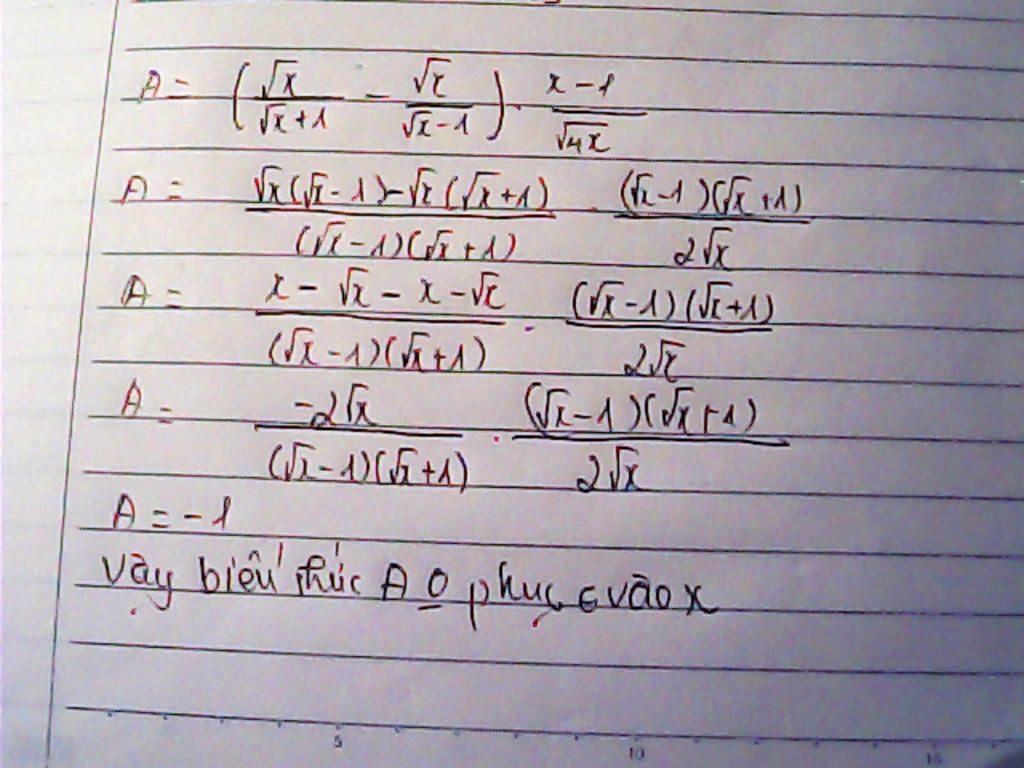 A = (√x/(√x+1) - √x/(√x-1)) . (x-1)/√4x
A = (√x(√x-1)-√x(√x+1))/((√x-1)(√x+1)) . ((√x-1)(√x+1))/(2√x)
A = (x-√x-x-√x)/((√x-1)(√x+1)) . ((√x-1)(√x+1))/(2√x)
A = (-2√x)/((√x-1)(√x+1)) . ((√x-1)(√x+1))/(2√x)
A = -1
Vậy biểu thức A O phục ∈ vào x
5 10 15